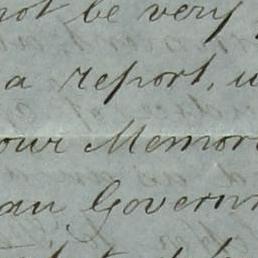 not be very
a report, u
our Memor
an Govern